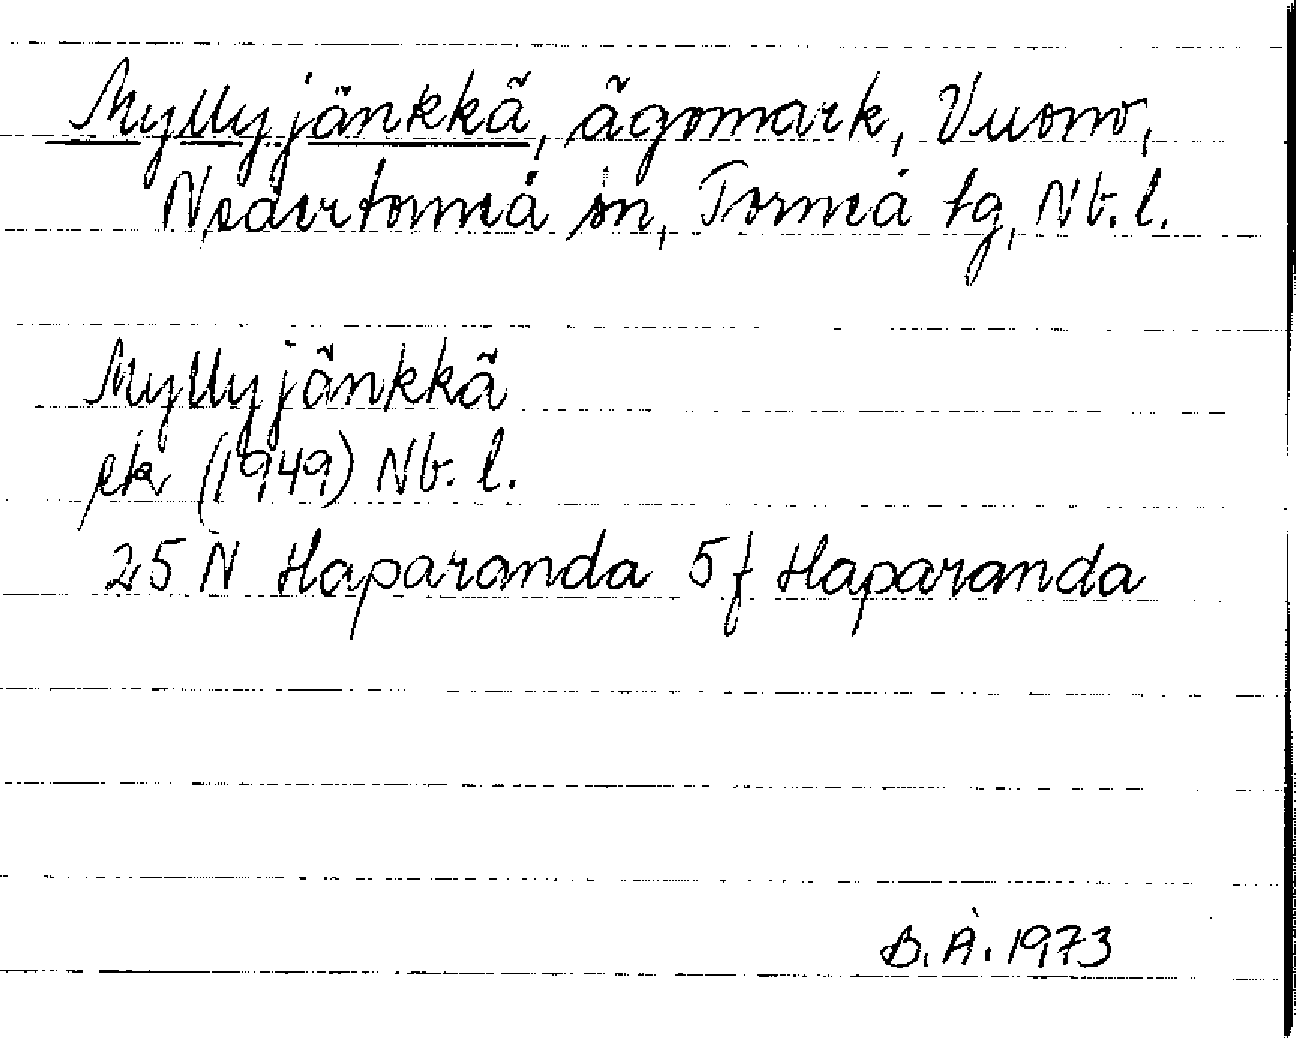 Myllyjänkkä, ägomark, Vuono,
Nedertorneå sn, Torneå tg, Nb. l.
Myllyjänkkä
ek (1949) Nb. l.
25 N Haparanda 5f Haparanda
B. Å. 1973